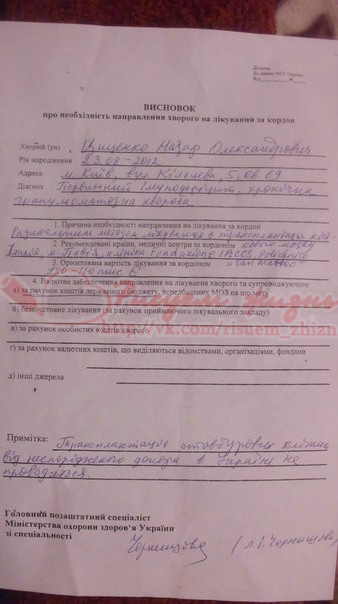 Додаток
до наказу МОЗ України
ВИСНОВОК
про необхідність направлення хворого на лікування за кордон
Хворий (ри) Ищенко Назар Олександрович
Рік народження 23.08.2012
Адреса м. Київ, вул Кільцева, 5,
Діагноз Первинний імунодефіцит, хронічна
грануломатозна хвороба
1. Причина необхідності направлення на лікування за кордон
Радикальним методом лікування є трансплантація
кового мозку
2. Рекомендовані країни, медичні центри за кордоном
Італія, м. Павія, клініка Fondazione IRCCS Policlinico
San Matteo
3. Орієнтовна вартість лікування за кордоном
4. Валютне забезпечення на лікування хворого та супроводжуючого:
а) за рахунок коштів державного бюджету, передбачених МОЗ на цю мету
б) безкоштовне лікування (за рахунок приймаючого лікувального закладу)
в) за рахунок особистих коштів хворого
http://vk.com/risuem_zhizn
г) за рахунок валютних коштів, що виділяються відомствами, організаціями, фондами
д) інші джерела
Примітка: Трансплантація стовбурових клітин
від неспорідненого донора в Україні не
проводиться.
Головний позаштатний спеціаліст
Міністерства охорони здоров'я України
зі спеціальності
Чернишова (Л.І. Чернишова)